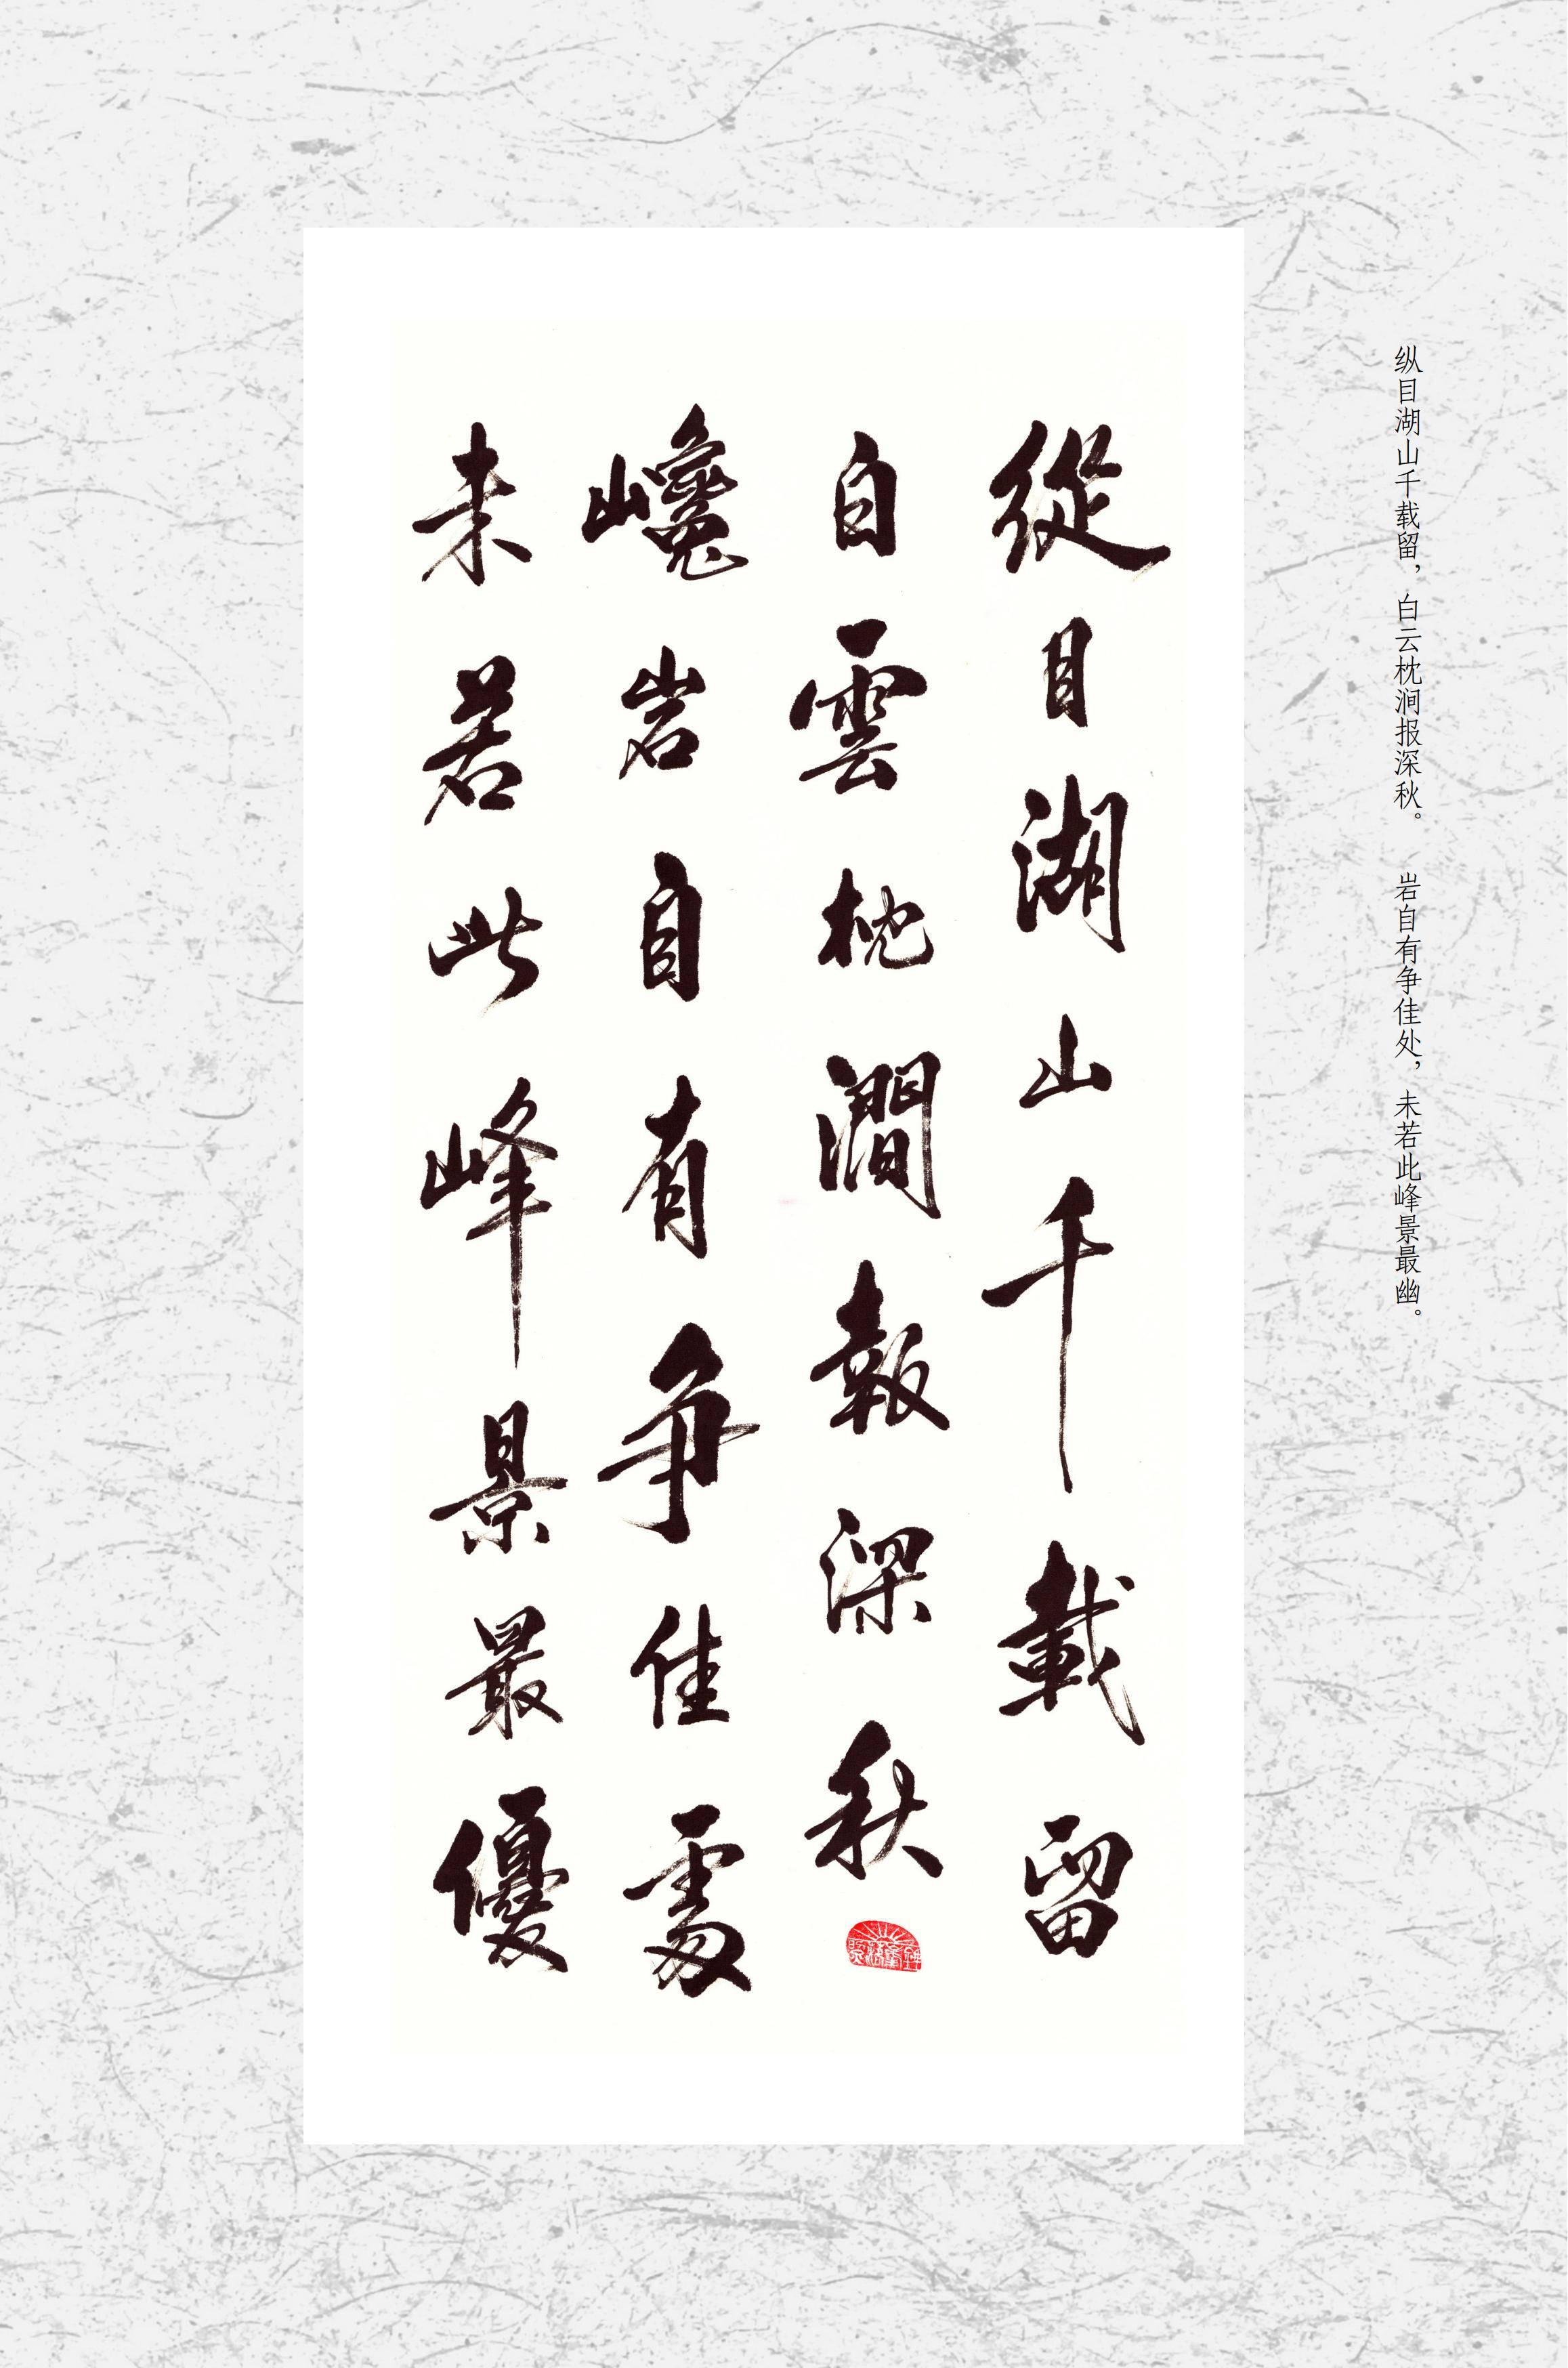 纵目湖山千载留，白云枕涧报深秋。　岩自有争佳处，未若此峰景最幽。
從目湖山千載留
白雲枕澗報深秋
巉岩自有争佳處
未若此峰景最優